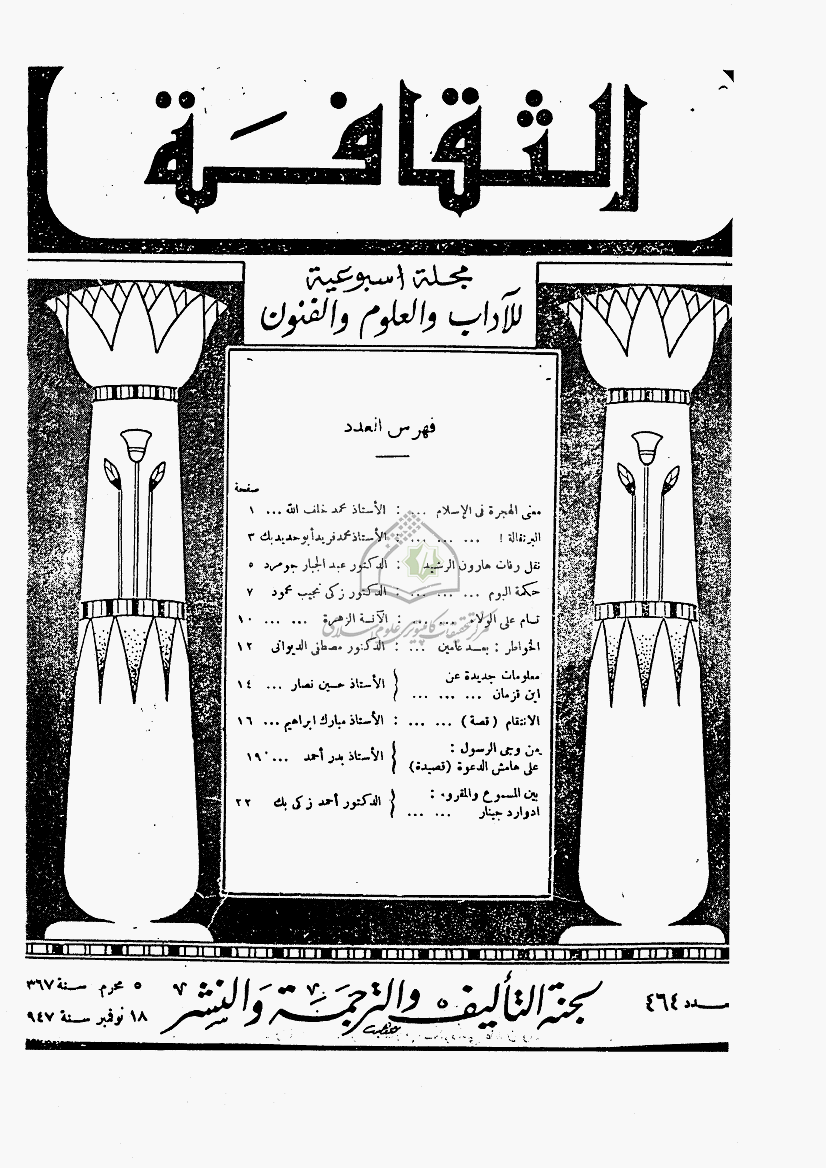 الثقافة
مجلة اسبوعية
للآداب والعلوم والفنون
فهرس العدد
صفحة
معنى الهجرة فى الإسلام ... : الأستاذ محمد خلف الله ... ١
البرتقالة ! ... ... ... : الأستاذ محمد فريد أبو حديد بك ٣
نقل رفات هارون الرشيد : الدكتور عبد الجبار جومرد ٥
حكمة البوم ... ... ... : الدكتور زكى نجيب محمود ٧
نام على الولاء ... ... : الآنسة الزهرة ... ... ١٠
الخواطر : بعد عامين ... : الدكتور مصطفى الديوانى ١٢
معلومات جديدة عن
ابن قزمان ... ... ... } الأستاذ حسين نصار ... ١٤
الانتقام ( قصة ) ... ... : الأستاذ مبارك ابراهيم ... ١٦
من وحى الرسول :
على هامش الدعوة (قصيدة) } الأستاذ بدر أحمد ... ١٩
بين المسموع والمقروء :
ادوارد جينار ... ... } الدكتور أحمد زكى بك ٢٢
مركز تحقيقات كامپيوترى علوم اسلامى
ـدد ٤٦٤
لجنة التأليف والترجمة والنشر
٥ محرم سنة ٣٦٧
١٨ نوفمبر سنة ٩٤٧